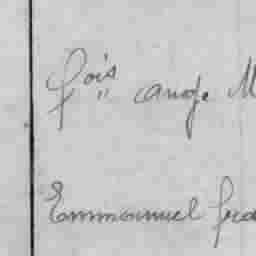 fois ange M
Emmanuel fra